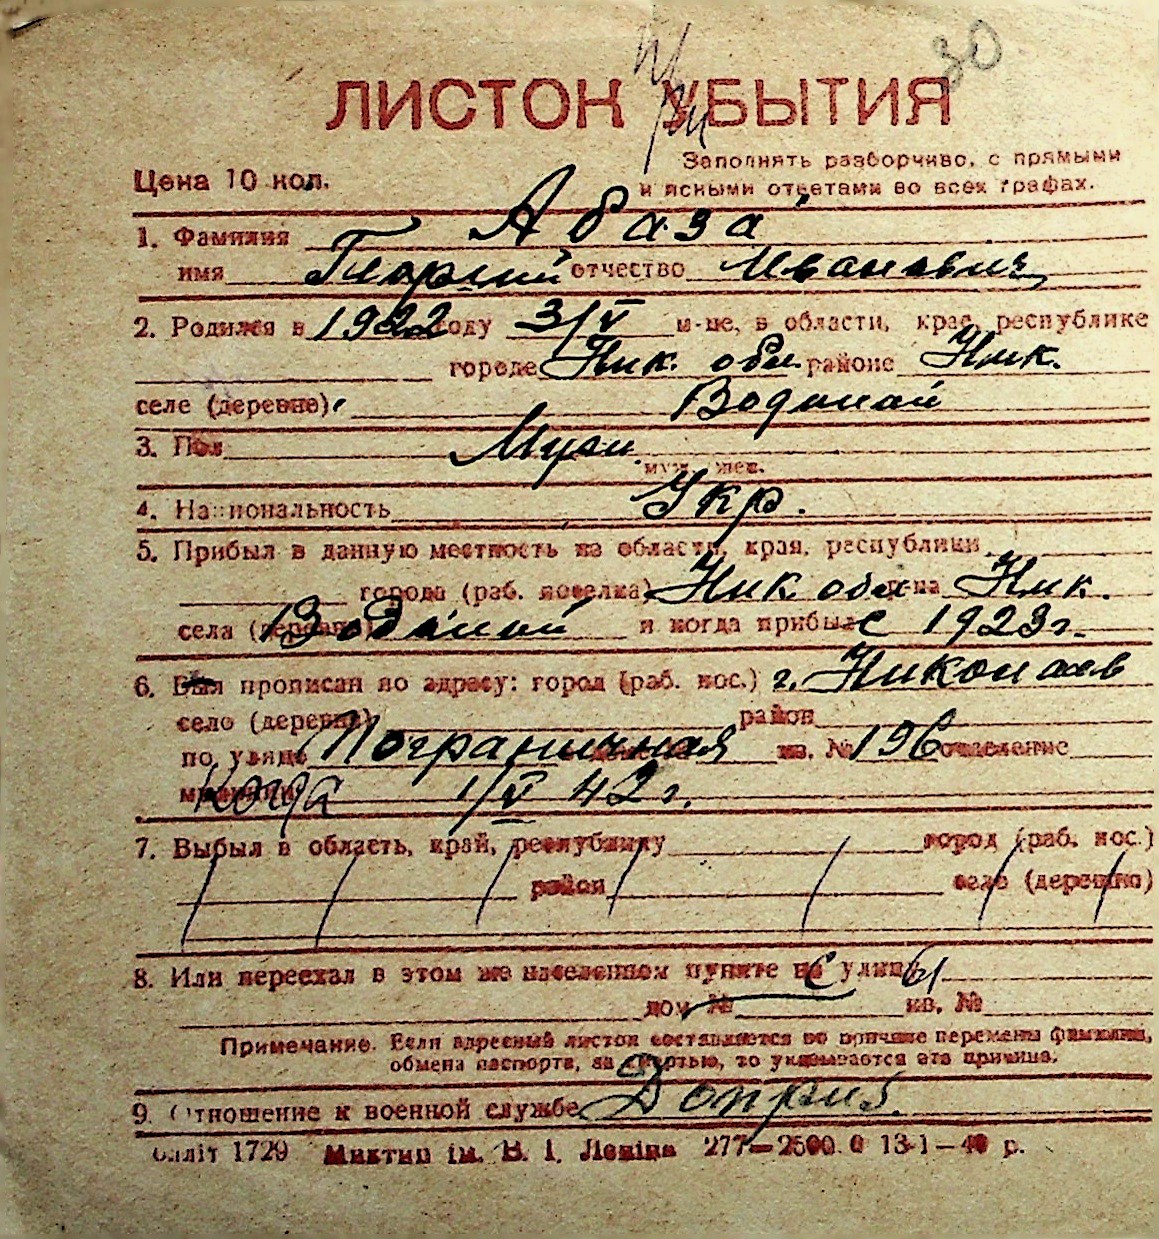 30
ЛИСТОК УБЫТИЯ
Заполнять разборчиво, с прямыми
Цена 10 коп.
и ясными ответами во всех графах.
1. Фамилия Абаза
имя Георгий отчество Иванович
2. Родился в 1922 году 3/V м-це, в области, крае, республике
городе Ник. обл. районе Ник.
селе (деревне) Водяной
3. Пол Муж.
муж. жен.
4. Национальность Укр.
5. Прибыл в данную местность из области, края, республики
города (раб. поселка) Ник обл р-на Ник.
села (деревни) Водяной и когда прибыл с 1923 г.
6. Был прописан по адресу: город (раб. пос.) г. Николаев
село (деревня) район
по улице Пограничная кв. № 196 отделение
милиции Когда 1/V 42 г.
7. Выбыл в область, край, республику город (раб. пос.)
район село (деревню)
8. Или переехал в этом же населенном пункте с улицы
дом № кв. №
Примечание. Если адресный листок составляется по причине перемены фамилии,
обмена паспорта, за смертью, то указывается эта причина.
9. Отношение к военной службе Доприз.
1729 Миктип ім. В. І. Леніна 277—2500.0 13-1—40 р.